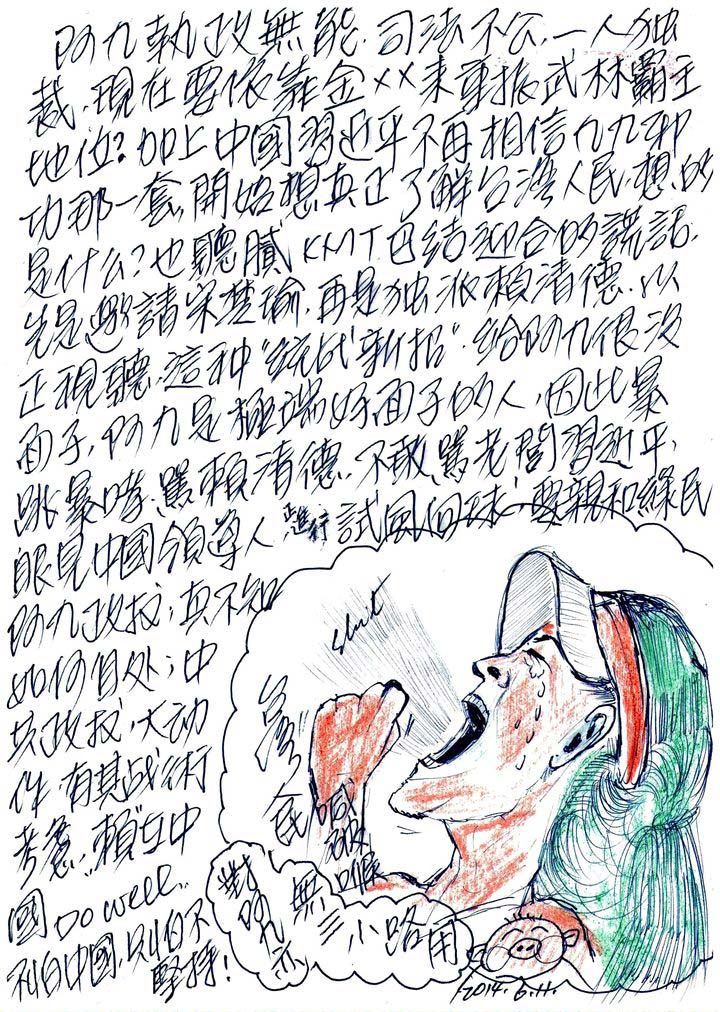 阿九執政無能.司法不公.一人独
裁.現在要依靠金××来重振武林霸主
地位?加上中國習近平不再相信九九神
功那一套,開始想真正了解台湾人民.想.的
是什么?也聽膩KMT巴結迎合的謊話.
先是邀請宋楚瑜.再是独派賴清德.以
正視聽.這种"統战新招".給阿九很没
面子,阿九是極端好面子的人,因此暴
跳暴哮.罵賴清德.不敢罵老闆習近平,
眼見中國領導人進行試風向球,要親和綠民
阿九政权,真不知
如何自处;中
共政权,大动
作.有其战術
考慮..賴在中
國DO well..
利自中國,則自不
堅持!
Shit
台湾
民喊
破喉
對阿九亦無三小路用
2014.6.11.